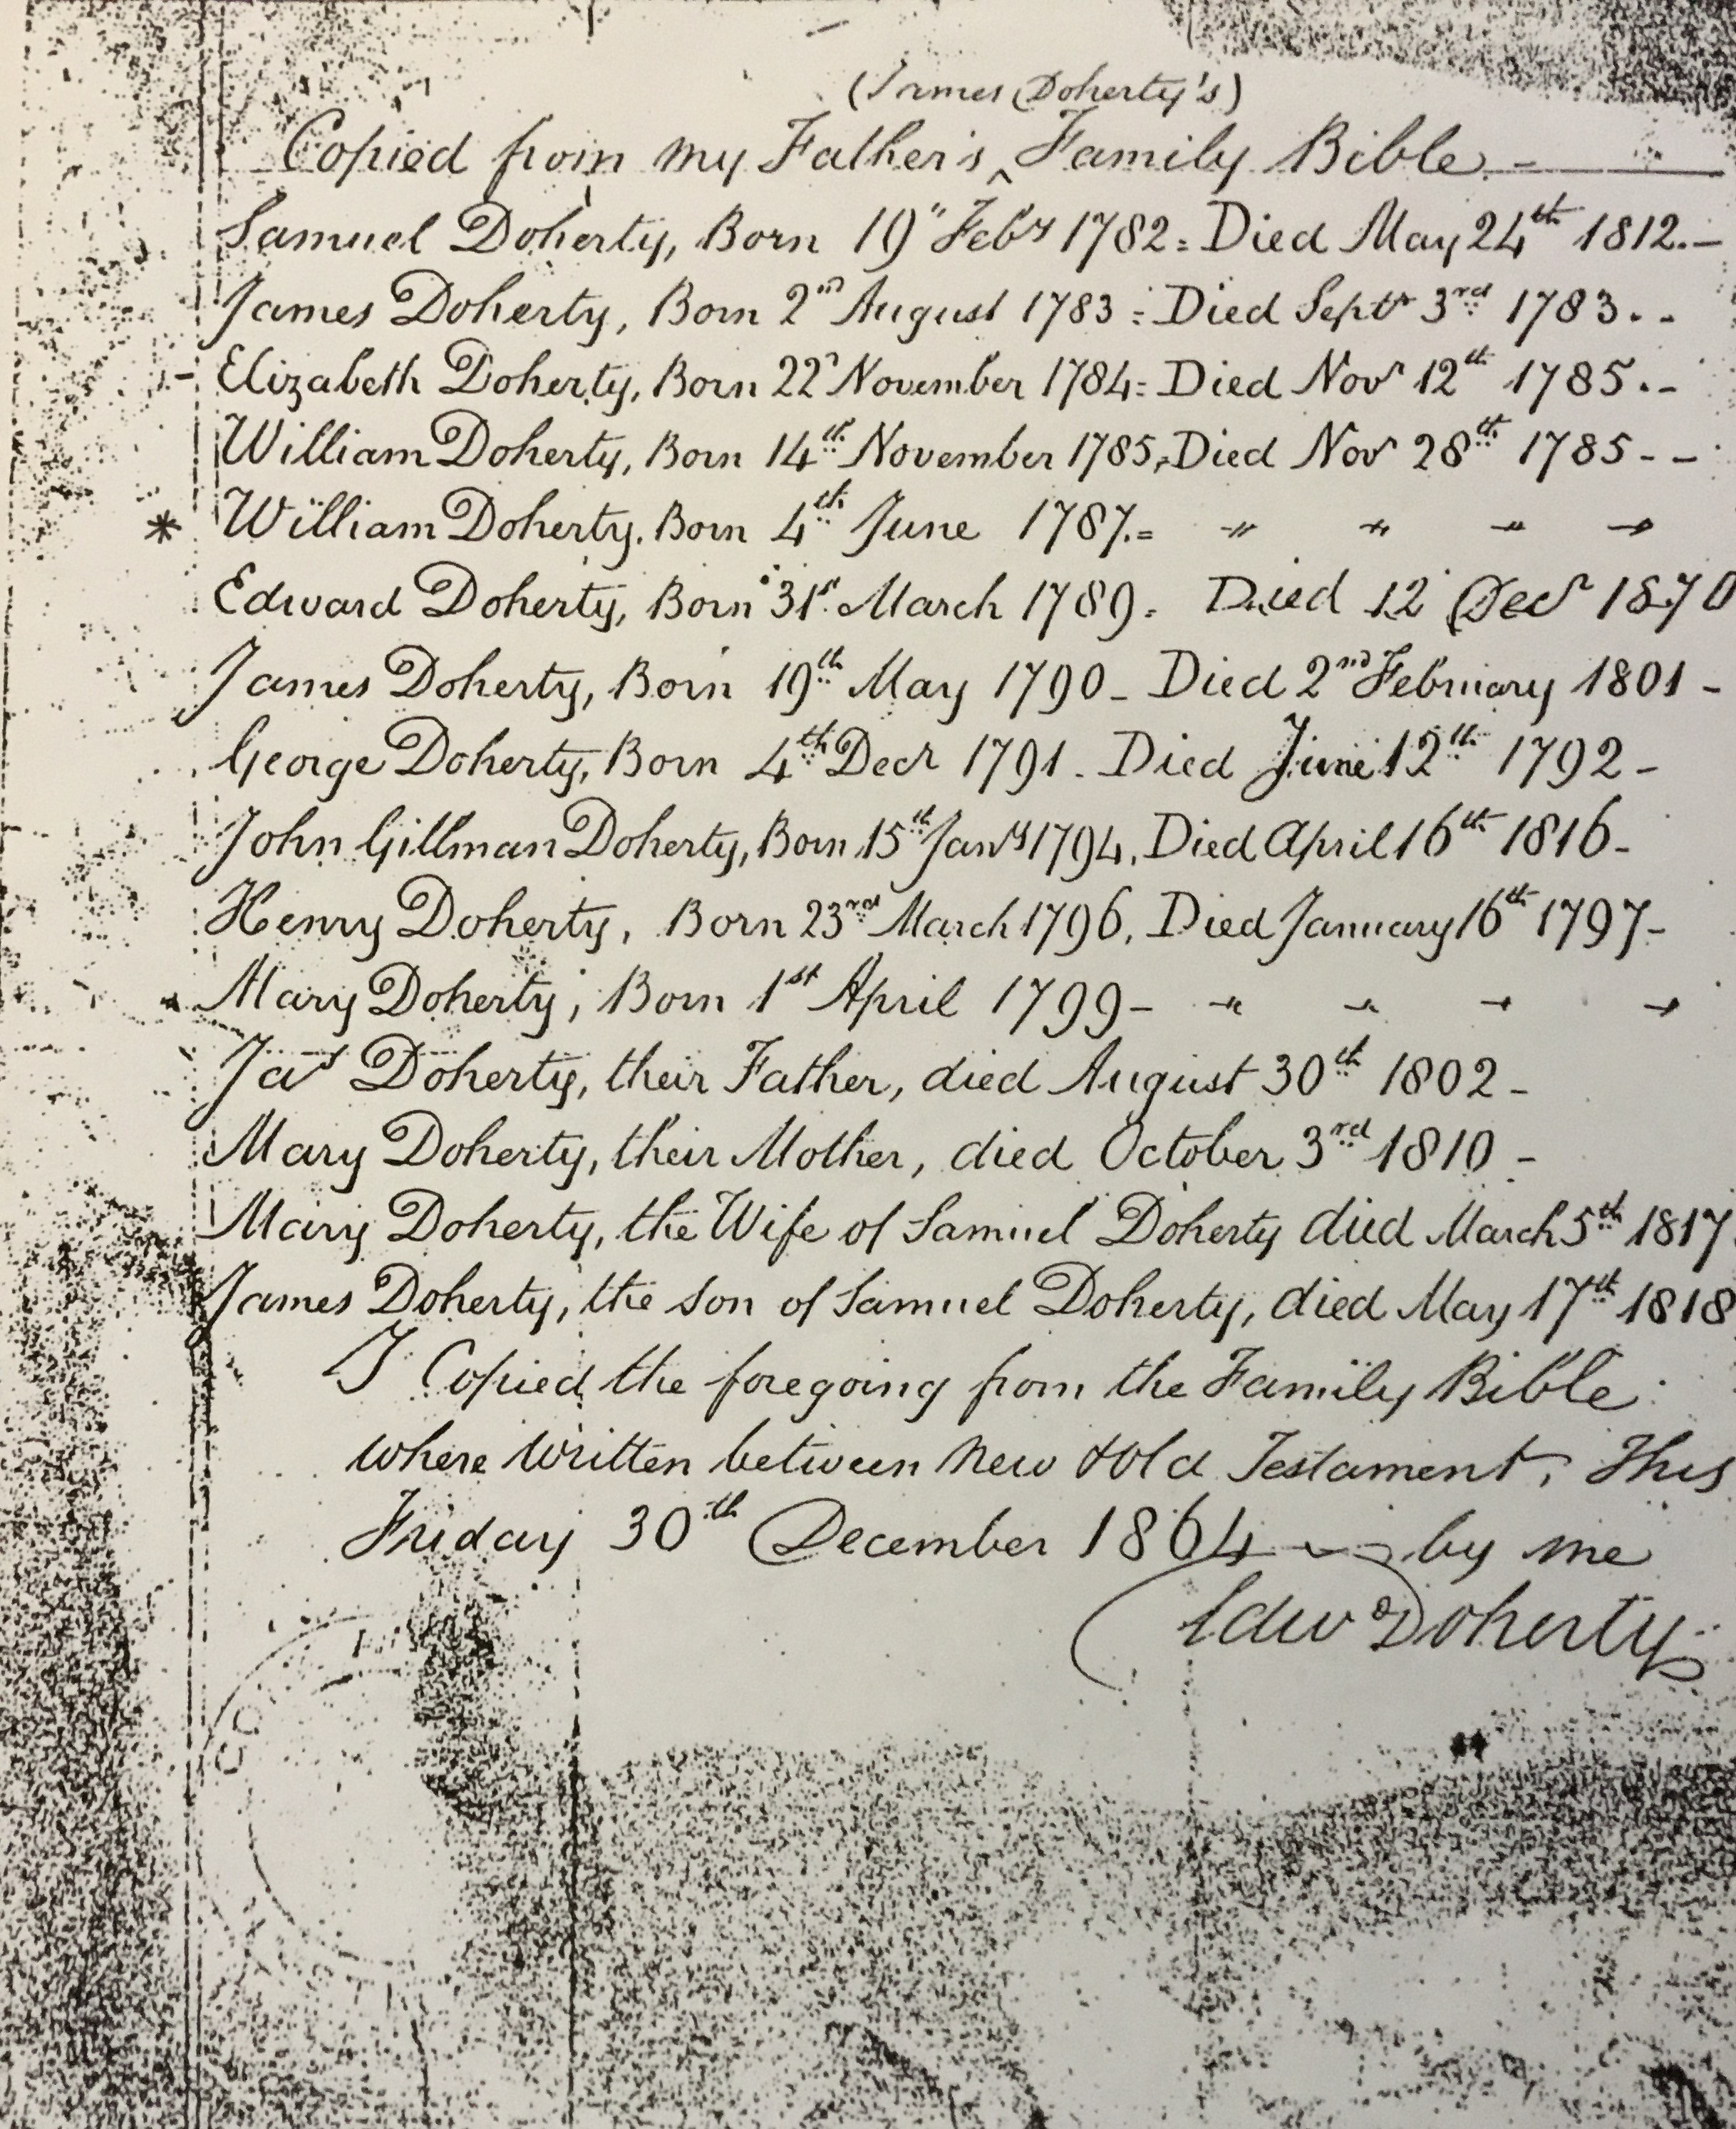 (James Doherty's)
Copied from my Father's ^ Family Bible -
Samuel Doherty, Born 19" Feby 1782 = Died May 24th 1812. -
James Doherty, Born 2nd August 1783 = Died Septr 3rd 1783. -
- Elizabeth Doherty, Born 22d November 1784 = Died Novr 12th 1785. -
William Doherty, Born 14th November 1785, Died Novr 28th 1785 - -
* William Doherty, Born 4th June 1787. = " " " "
Edward Doherty, Born 31st March 1789. Died 12 Decr 1870
James Doherty, Born 19th May 1790 - Died 2nd February 1801 -
George Doherty, Born 4th Decr 1791. Died June 12th 1792 -
John Gillman Doherty, Born 15th Jany 1794, Died April 16th 1816 -
Henry Doherty, Born 23rd March 1796, Died January 16th 1797 -
Mary Doherty, Born 1st April 1799 - " " " "
Jas Doherty, their Father, died August 30th 1802 -
Mary Doherty, their Mother, died October 3rd 1810 -
Mary Doherty, the Wife of Samuel Doherty died March 5th 1817
James Doherty, the son of Samuel Doherty, died May 17th 1818
I Copied the foregoing from the Family Bible
where written between New & Old Testament, This
Friday 30th December 1864 by me
Edwd Doherty